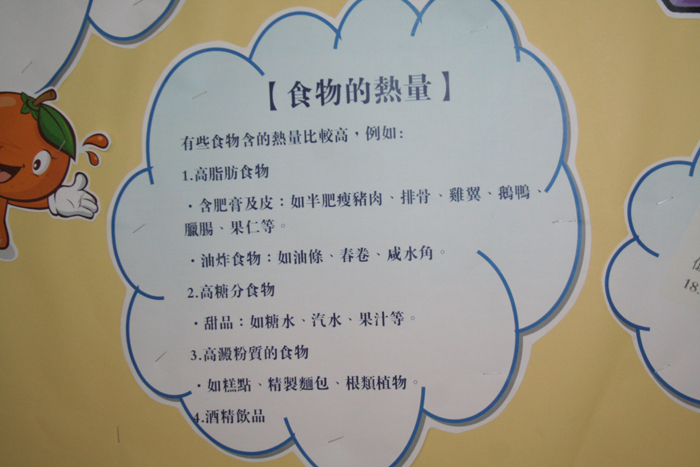 【食物的熱量】
有些食物含的熱量比較高，例如：
1.高脂肪食物
・含肥膏及皮：如半肥瘦豬肉、排骨、雞翼、鵝鴨、
臘腸、果仁等。
・油炸食物：如油條、春卷、咸水角。
2.高糖分食物
・甜品：如糖水、汽水、果汁等。
3.高澱粉質的食物
・如糕點、精製麵包、根類植物。
4.酒精飲品
18